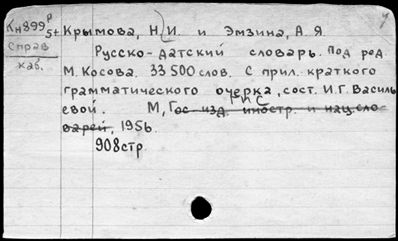 Кн899Р
5+ Крымова, Н.И. и Эмзина, А.Я
Справ
каб.
Русско-датский словарь. Под ред.
М. Косова. 33 500 слов. С прил. краткого
грамматического очерка, сост. И.Г. Василь
евой. М, Гос. изд. иностр. и нац. сло
варей, 1956.
908 стр.